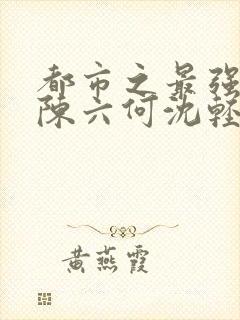 都市之最强
陈六何沈轻
黄燕霞